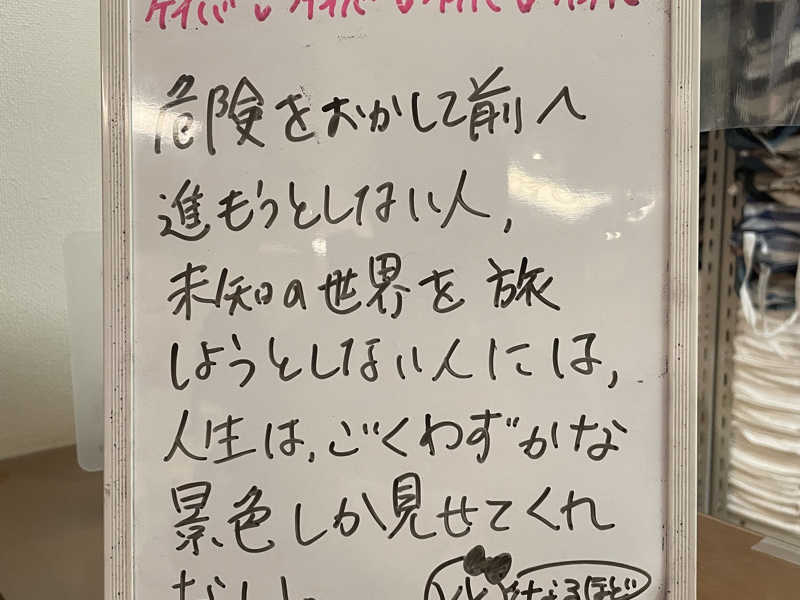 危険をおかして前へ
進もうとしない人,
未知の世界を旅
しようとしない人には,
人生は,ごくわずかな
景色しか見せてくれ
ない。
なるほど